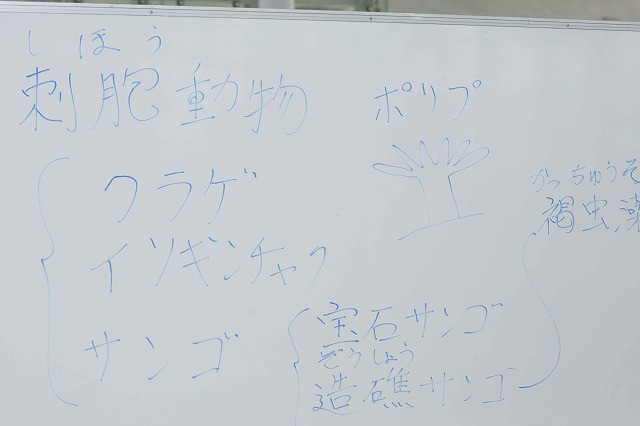 しほう
刺胞動物
ポリプ
クラゲ
イソギンチャク
サンゴ
かっちゅうそ
褐虫藻
宝石サンゴ
ぞうしょう
造礁サンゴ